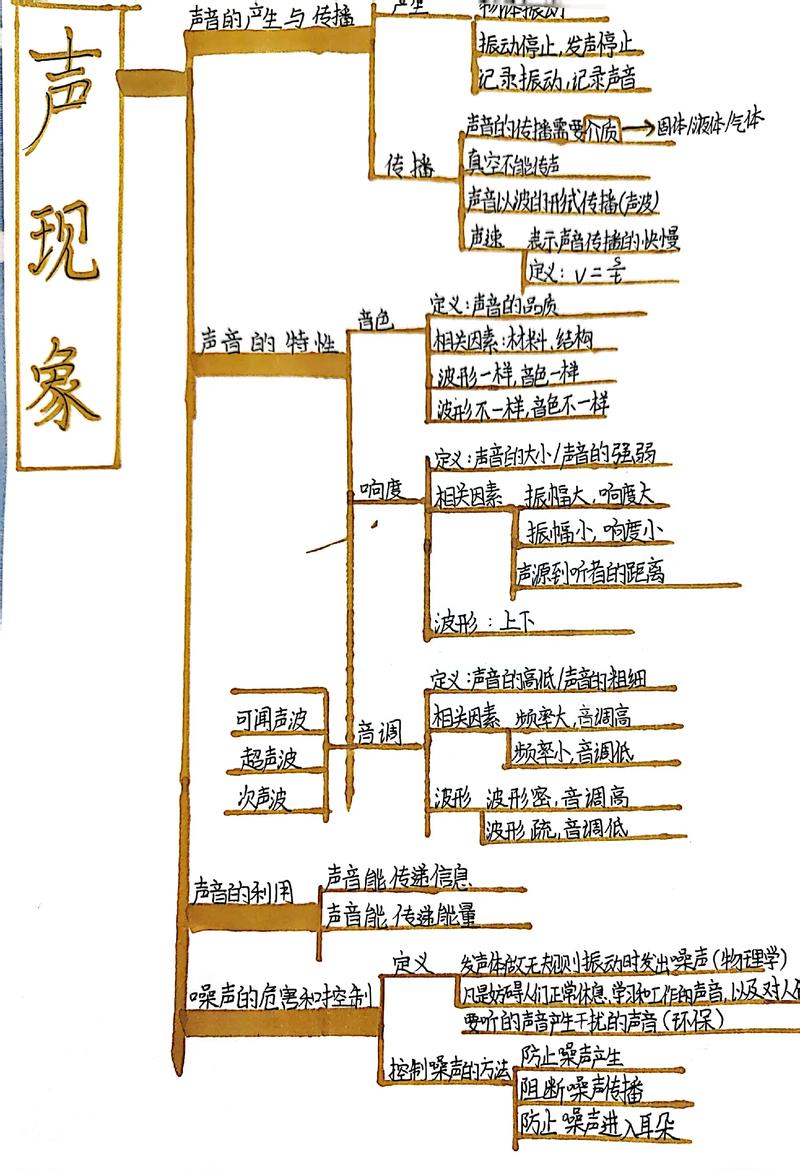 声现象
声音的产生与传播
产生
物体振动
振动停止,发声停止
记录振动,记录声音
传播
声音的传播需要介质→固体/液体/气体
真空不能传声
声音以波的形式传播(声波)
声速 表示声音传播的快慢
定义:v=s/t
声音的特性
音色
定义:声音的品质
相关因素:材料、结构
波形一样,音色一样
波形不一样,音色不一样
响度
定义:声音的大小/声音的强弱
相关因素 振幅大,响度大
振幅小,响度小
声源到听者的距离
波形:上下
音调
定义:声音的高低/声音的粗细
相关因素 频率大,音调高
频率小,音调低
波形 波形密,音调高
波形疏,音调低
可闻声波
超声波
次声波
声音的利用
声音能传递信息
声音能传递能量
噪声的危害和控制
定义 发声体做无规则振动时发出噪声(物理学)
凡是妨碍人们正常休息、学习和工作的声音,以及对人们
要听的声音产生干扰的声音(环保)
控制噪声的方法
防止噪声产生
阻断噪声传播
防止噪声进入耳朵